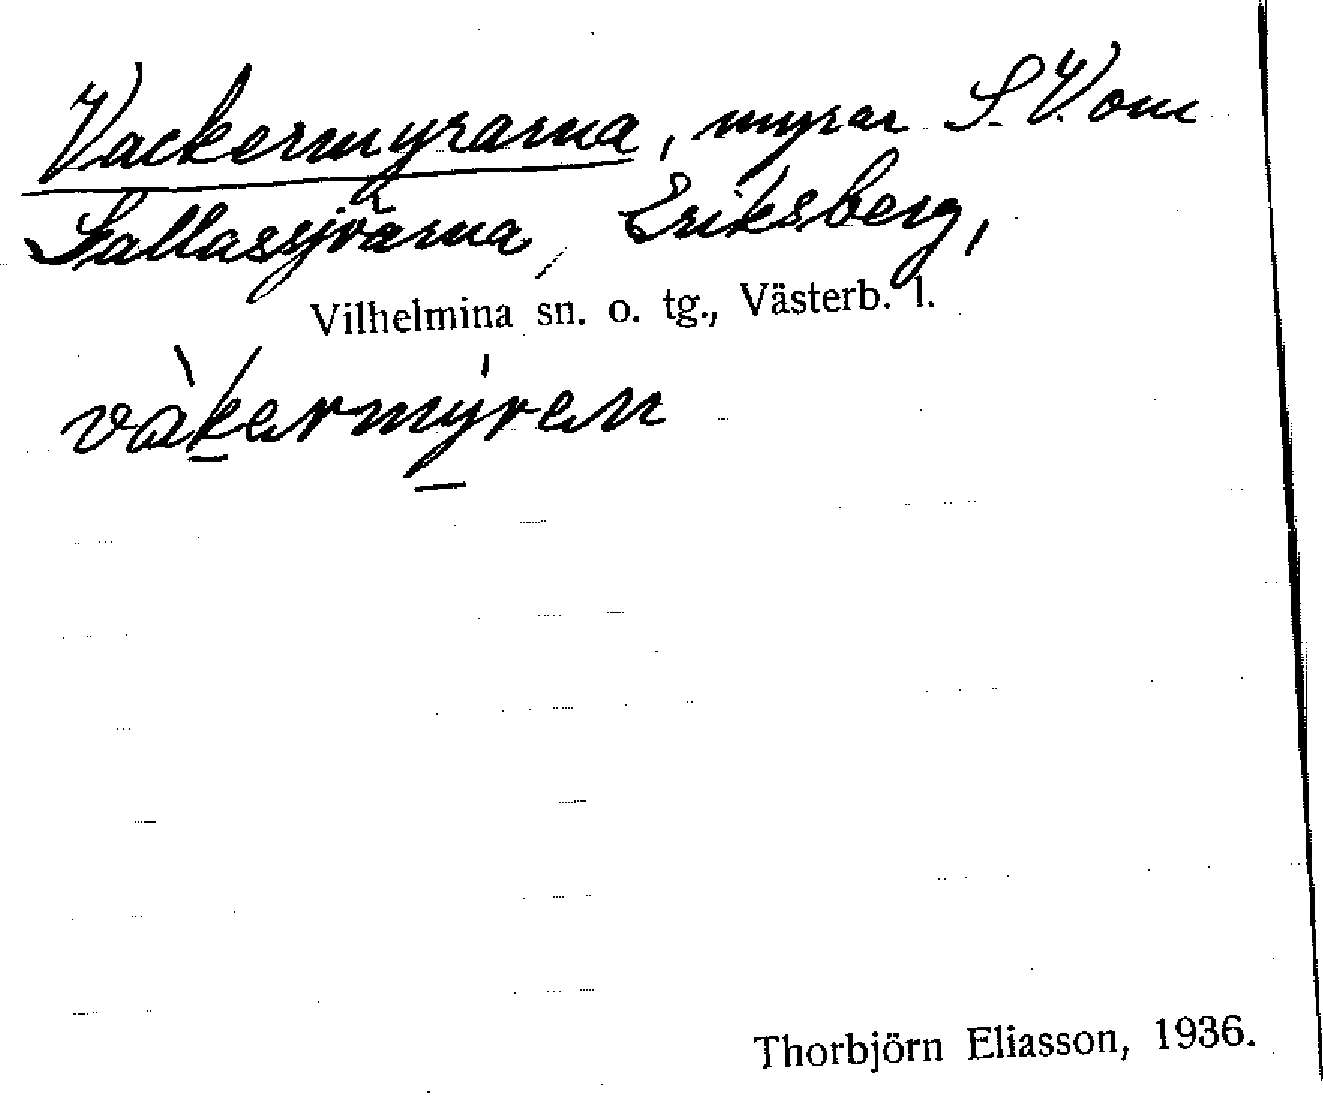 Vackermyrarna, myrar S.V. om
Sallassjöarna, Eriksberg,
Vilhelmina sn. o. tg., Västerb. l.
vàkermýren
Thorbjörn Eliasson, 1936.